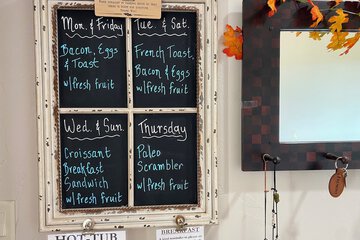 Mon. & Friday
Bacon, Eggs
& Toast
w/fresh fruit
Tue. & Sat.
French Toast,
Bacon & Eggs
w/fresh fruit
Wed. & Sun.
Croissant
Breakfast
Sandwich
w/fresh fruit
Thursday
Paleo
Scrambler
w/fresh fruit
HOT-TUB
BREAKFAST